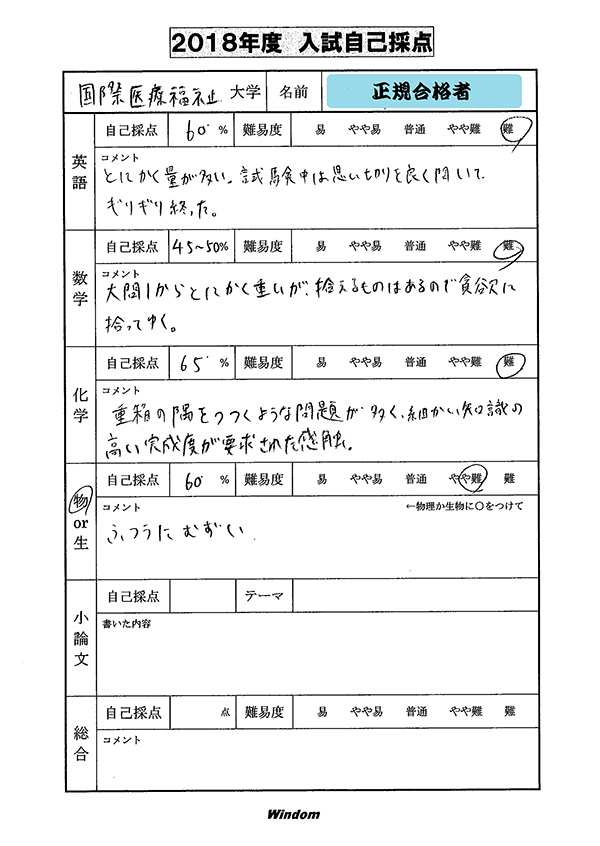 2018年度 入試自己採点
国際医療福祉 大学 名前 正規合格者
英語 自己採点 60 % 難易度 易 やや易 普通 やや難 難
コメント
とにかく量が多い。試験中は思い切りを良く解いて
ギリギリ終った。
数学 自己採点 45~50% 難易度 易 やや易 普通 やや難 難
コメント
大問1からとにかく重いが、拾えるものはあるので貪欲に
拾ってゆく。
化学 自己採点 65 % 難易度 易 やや易 普通 やや難 難
コメント
重箱の隅をつつくような問題が多く、細かい知識の
高い完成度が要求された感触。
物or生 自己採点 60 % 難易度 易 やや易 普通 やや難 難
コメント ←物理か生物に〇をつけて
ふつうにむずい
小論文 自己採点 テーマ
書いた内容
総合 自己採点 点 難易度 易 やや易 普通 やや難 難
コメント
Windom